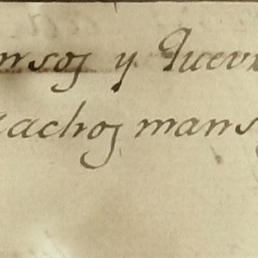 nsos y Nuev
achos mans